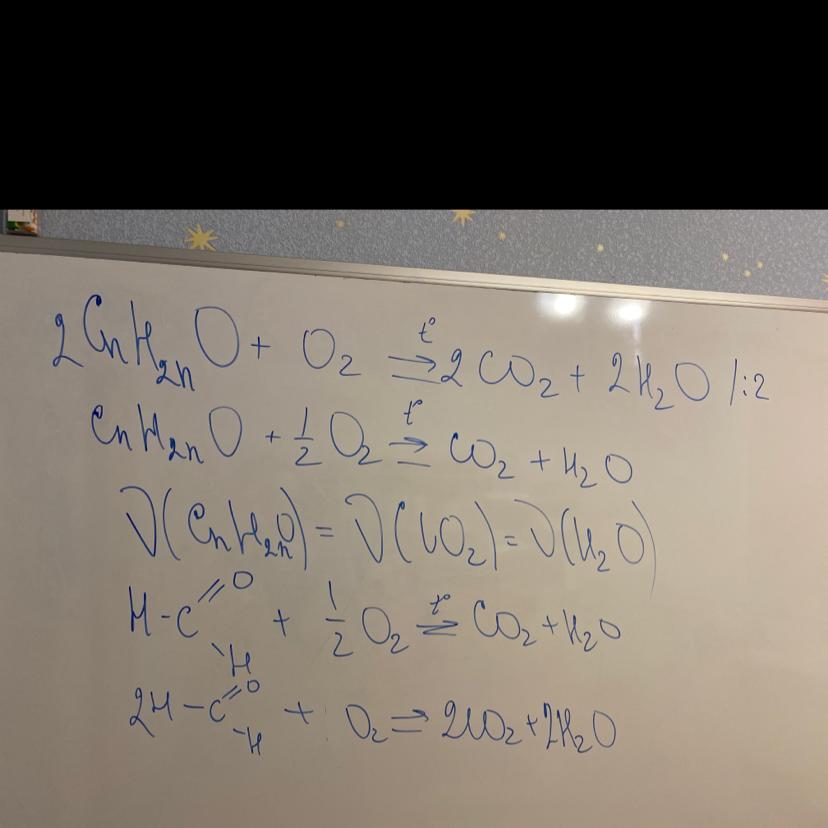 2CnH₂nO + O₂ ⇒ t° 2CO₂ + 2H₂O /:2
CnH₂nO + 1/2 O₂ ⇒ t° CO₂ + H₂O
ν(CnH₂nO) = ν(CO₂) = ν(H₂O)
H-C(=O)-H + 1/2 O₂ ⇒ t° CO₂ + H₂O
2H-C(=O)-H + O₂ ⇒ 2CO₂ + 2H₂O